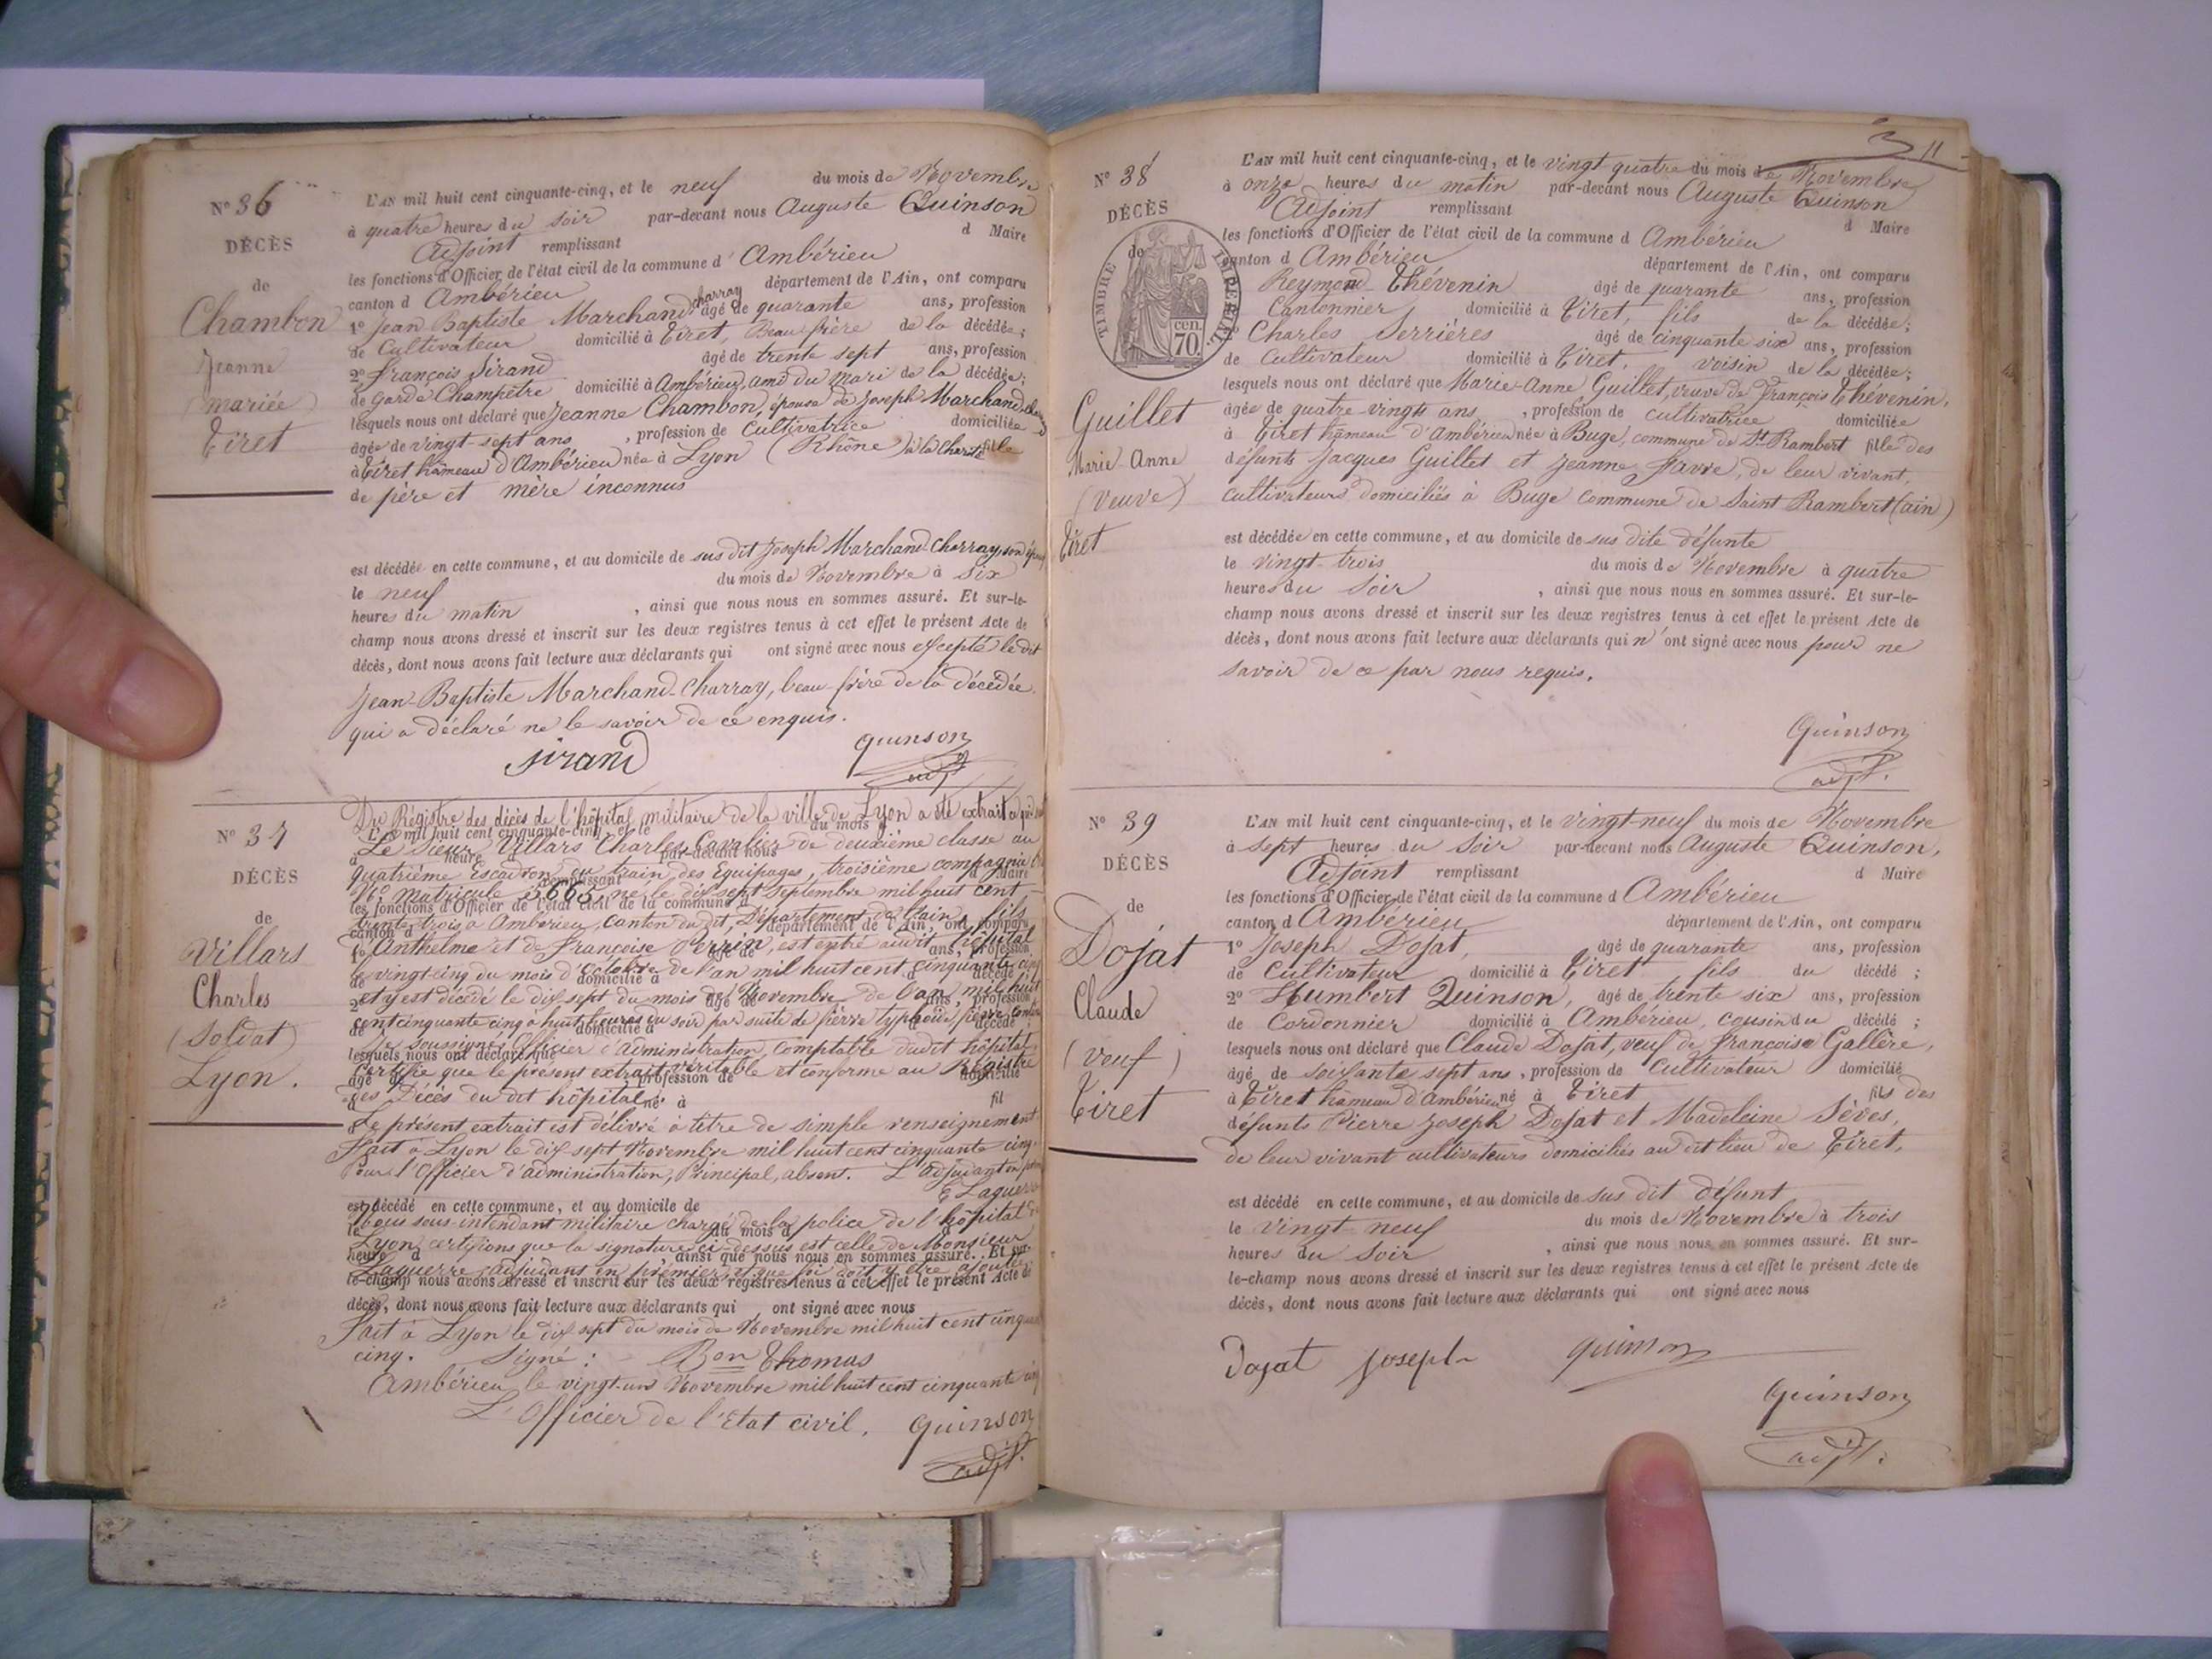 N° 36
DÉCÈS
de
Chambon
Jeanne
(mariée)
Tiret
L'AN mil huit cent cinquante-cinq, et le neuf du mois de Novembre
à quatre heures du soir par-devant nous Auguste Quinson
Adjoint remplissant d Maire
les fonctions d'Officier de l'état civil de la commune d'Ambérieu
canton d Ambérieu département de l'Ain, ont comparu
1° Jean Baptiste Marchand charray âgé de quarante ans, profession
de Cultivateur domicilié à Tiret, Beau frère de la décédée;
2° François Sirand âgé de trente sept ans, profession
de garde Champêtre domicilié à Ambérieu, ami du mari de la décédée;
lesquels nous ont déclaré que Jeanne Chambon, épouse de Joseph Marchand
âgée de vingt-sept ans, profession de Cultivatrice domiciliée
à Tiret hâmeau d'Ambérieu née à Lyon (Rhône) à la Charité fille
de père et mère inconnus
est décédée en cette commune, et au domicile de sus dit Joseph Marchand Charray, son
le neuf du mois de Novembre à six
heures du matin, ainsi que nous nous en sommes assuré. Et sur-le-
champ nous avons dressé et inscrit sur les deux registres tenus à cet effet le présent Acte de
décès, dont nous avons fait lecture aux déclarants qui ont signé avec nous excepté le dit
Jean-Baptiste Marchand-Charray, beau-frère de la décédée
qui a déclaré ne le savoir de ce enquis.
Sirand Quinson
adjt
N° 37
DÉCÈS
de
Villars
Charles
(Soldat)
Lyon.
Du Régistre des décès de l'hôpital militaire de la ville de Lyon a été extrait ce qui
L'AN mil huit cent cinquante-cinq, et le du mois
Le Sieur Villars Charles Cavalier de deuxième classe au
à heure d par-devant nous
quatrième Escadron du train des Equipages, troisième compagnie
remplissant d Maire
N° Matricule 3665, né le dix sept Septembre mil huit cent
les fonctions d'Officier de l'état civil de la commune d
trente trois à Ambérieu, Canton du dit, Département de l'ain, fils
canton d département de l'Ain, ont comparu
d'Anthelme et de Françoise Perrin, est entré audit hôpital
1° âgé de ans, profession
le vingt cinq du mois d'octobre de l'an mil huit cent cinquante cinq
de domicilié à d décédé;
et y est décédé le dix sept du mois de Novembre de l'an mil huit
2° âgé de ans, profession
cent cinquante cinq à huit heures du soir par suite de fièvre typhoïde
de domicilié à d décédé;
Je soussigné Officier d'administration, comptable dudit hôpital
lesquels nous ont déclaré que
certifie que le présent extrait véritable et conforme au Régistre
âgé de profession de domicilié
des Décès du dit hôpital
à né à fil
Le présent extrait est délivré à titre de simple renseignement
Fait à Lyon le dix sept Novembre mil huit cent cinquante cinq.
Pour l'Officier d'administration, Principal, absent. L'adjudant en
Laguerre
est décédé en cette commune, et au domicile de
Nous sous-intendant militaire chargé de la police de l'hôpital
le du mois d
Lyon certifions que la signature ci-dessus est celle de Monsieur
heure d, ainsi que nous nous en sommes assuré. Et sur-
Laguerre adjudant en premier, et que foi doit y être ajoutée
le-champ nous avons dressé et inscrit sur les deux registres tenus à cet effet le présent Acte de
décès, dont nous avons fait lecture aux déclarants qui ont signé avec nous
Fait à Lyon le dix sept du mois de Novembre mil huit cent cinquante
cinq. Signé: Bon Thomas
Ambérieu le vingt-un Novembre mil huit cent cinquante cinq
L'Officier de l'Etat civil, Quinson
adjt.
11
N° 38
DÉCÈS
de
TIMBRE IMPERIAL
70 cen.
Guillet
Marie Anne
(veuve)
Tiret
L'AN mil huit cent cinquante-cinq, et le vingt quatre du mois de Novembre
à onze heures du matin par-devant nous Auguste Quinson
Adjoint remplissant d Maire
les fonctions d'Officier de l'état civil de la commune d Ambérieu
canton d Ambérieu département de l'Ain, ont comparu
Reymond Thévenin âgé de quarante ans, profession
Cantonnier domicilié à Tiret, fils de la décédée;
Charles Serrières âgé de cinquante six ans, profession
de Cultivateur domicilié à Tiret, voisin de la décédée;
lesquels nous ont déclaré que Marie-Anne Guillet, veuve de François Thévenin,
âgée de quatre-vingts ans, profession de cultivatrice domiciliée
à Tiret hâmeau d'Ambérieu née à Buge, commune de St Rambert fille des
défunts Jacques Guillet et Jeanne Favre, de leur vivant,
cultivateurs domiciliés à Buge commune de Saint Rambert (ain)
est décédée en cette commune, et au domicile de sus dite défunte
le vingt-trois du mois de Novembre à quatre
heures du Soir, ainsi que nous nous en sommes assuré. Et sur-le-
champ nous avons dressé et inscrit sur les deux registres tenus à cet effet le présent Acte de
décès, dont nous avons fait lecture aux déclarants qui n'ont signé avec nous pour ne
savoir de ce par nous requis.
Quinson
adjt.
N° 39
DÉCÈS
de
Dojat
Claude
(veuf)
Tiret
L'AN mil huit cent cinquante-cinq, et le vingt-neuf du mois de Novembre
à Sept heures du Soir par-devant nous Auguste Quinson,
Adjoint remplissant d Maire
les fonctions d'Officier de l'état civil de la commune d Ambérieu
canton d Ambérieu département de l'Ain, ont comparu
1° Joseph Dojat, âgé de quarante ans, profession
de Cultivateur domicilié à Tiret fils du décédé;
2° Humbert Quinson, âgé de trente six ans, profession
de Cordonnier domicilié à Ambérieu, cousin du décédé;
lesquels nous ont déclaré que Claude Dojat, veuf de Françoise Gallère,
âgé de soixante sept ans, profession de Cultivateur domicilié
à Tiret hameau d'Ambérieu né à Tiret fils des
défunts Pierre Joseph Dojat et Madeleine Sèves,
de leur vivant cultivateurs domiciliés au dit lieu de Tiret,
est décédé en cette commune, et au domicile de sus dit défunt
le vingt-neuf du mois de Novembre à trois
heures du Soir, ainsi que nous nous en sommes assuré. Et sur-
le-champ nous avons dressé et inscrit sur les deux registres tenus à cet effet le présent Acte de
décès, dont nous avons fait lecture aux déclarants qui ont signé avec nous
Dojat Joseph Quinson
Quinson
adjt.